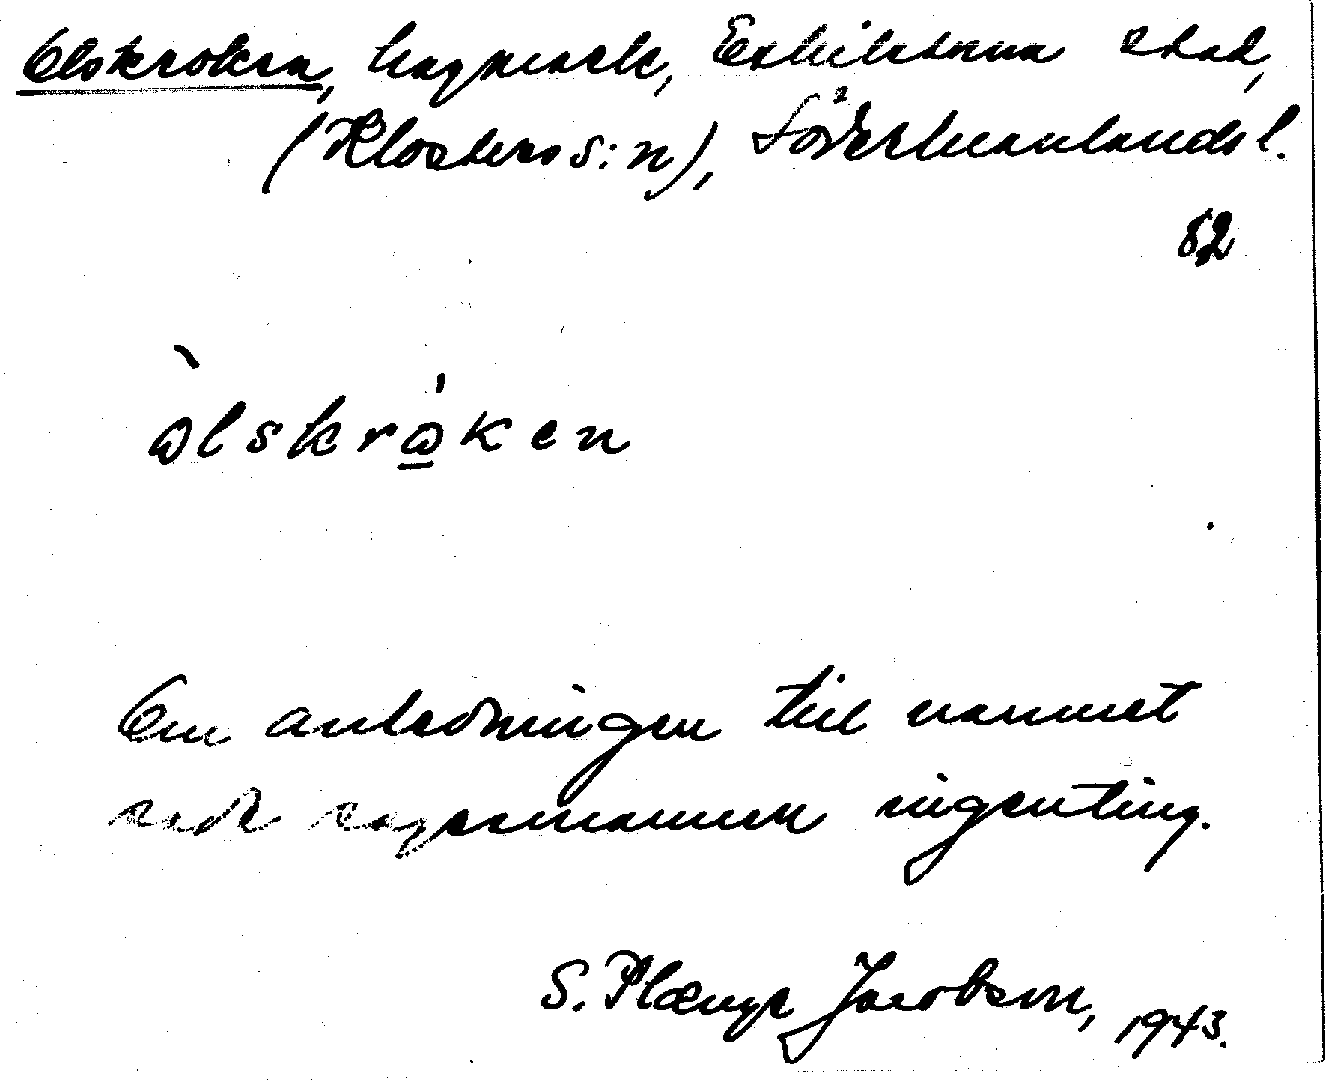 Olskroken, hagmark, Eskilstuna stad,
(Klosters s:n), Södermanlands l.
52
òlskrɷ̀ken
Om anledningen till namnet
vet sagesmannen ingenting.
S. Plænge Jacobson, 1943.